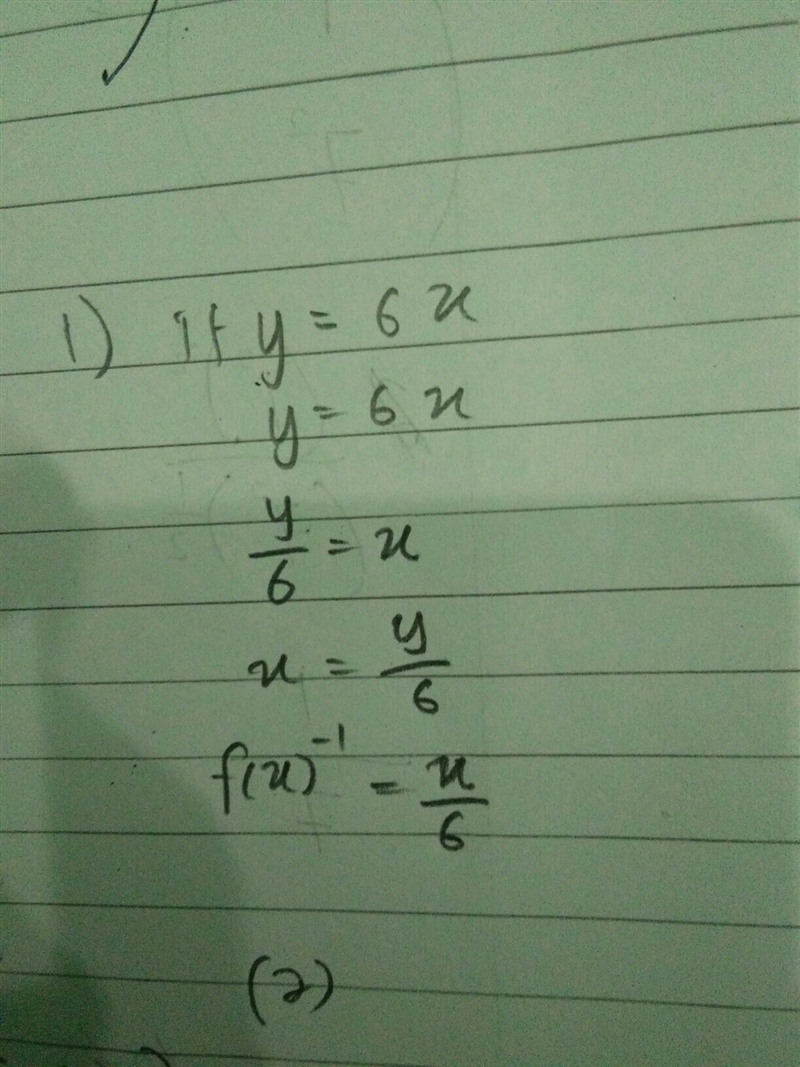 1) If y = 6x
y = 6x
y/6 = x
x = y/6
f(x)⁻¹ = x/6
(2)